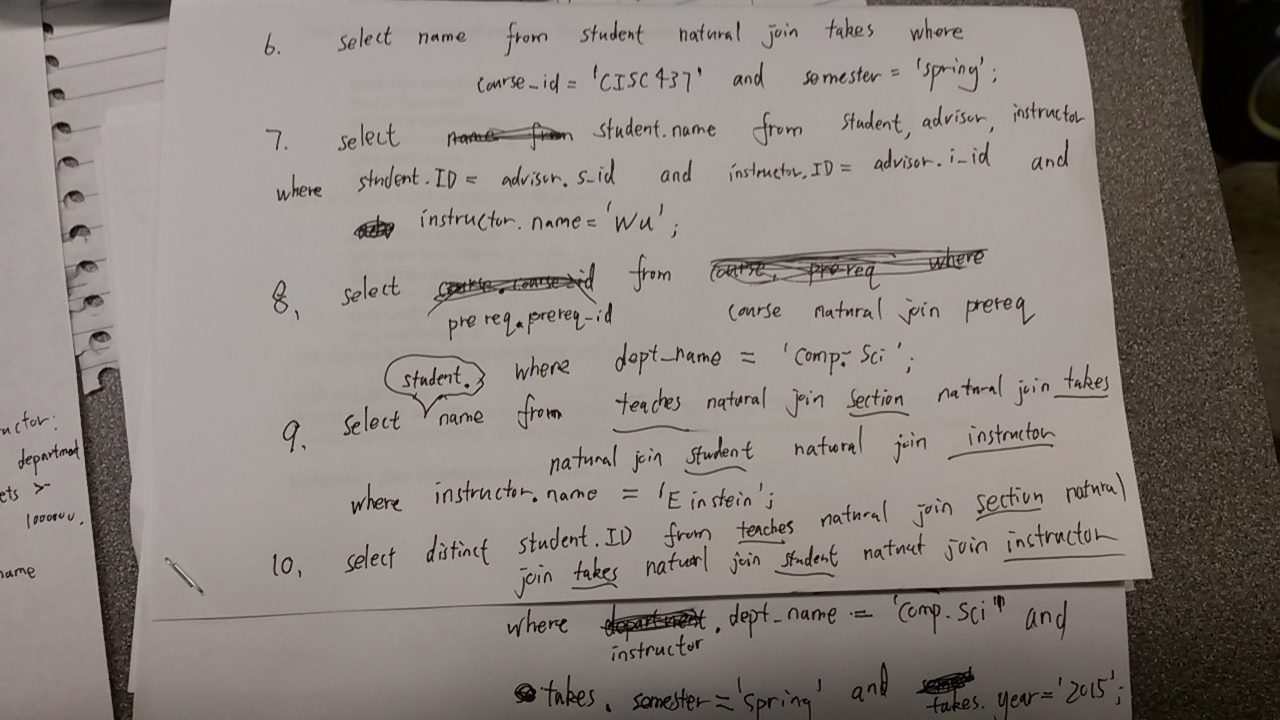 6. select name from student natural join takes where
course_id = 'CISC437' and semester = 'spring';
7. select student.name from student, advisor, instructor
where student.ID = advisor.s_id and instructor.ID = advisor.i_id and
instructor.name = 'Wu';
8, select from
prereq.prereq-id course natural join prereq
where dept_name = 'comp. Sci';
student.
9. select name from teaches natural join section natural join takes
natural join student natural join instructor
where instructor.name = 'Einstein';
10, select distinct student.ID from teaches natural join section natural
join takes natural join student natural join instructor
where . dept_name = 'comp. Sci" and
instructor
takes. semester = 'spring' and takes. year = '2015';
uctor:
department
ets >
1000000.
name